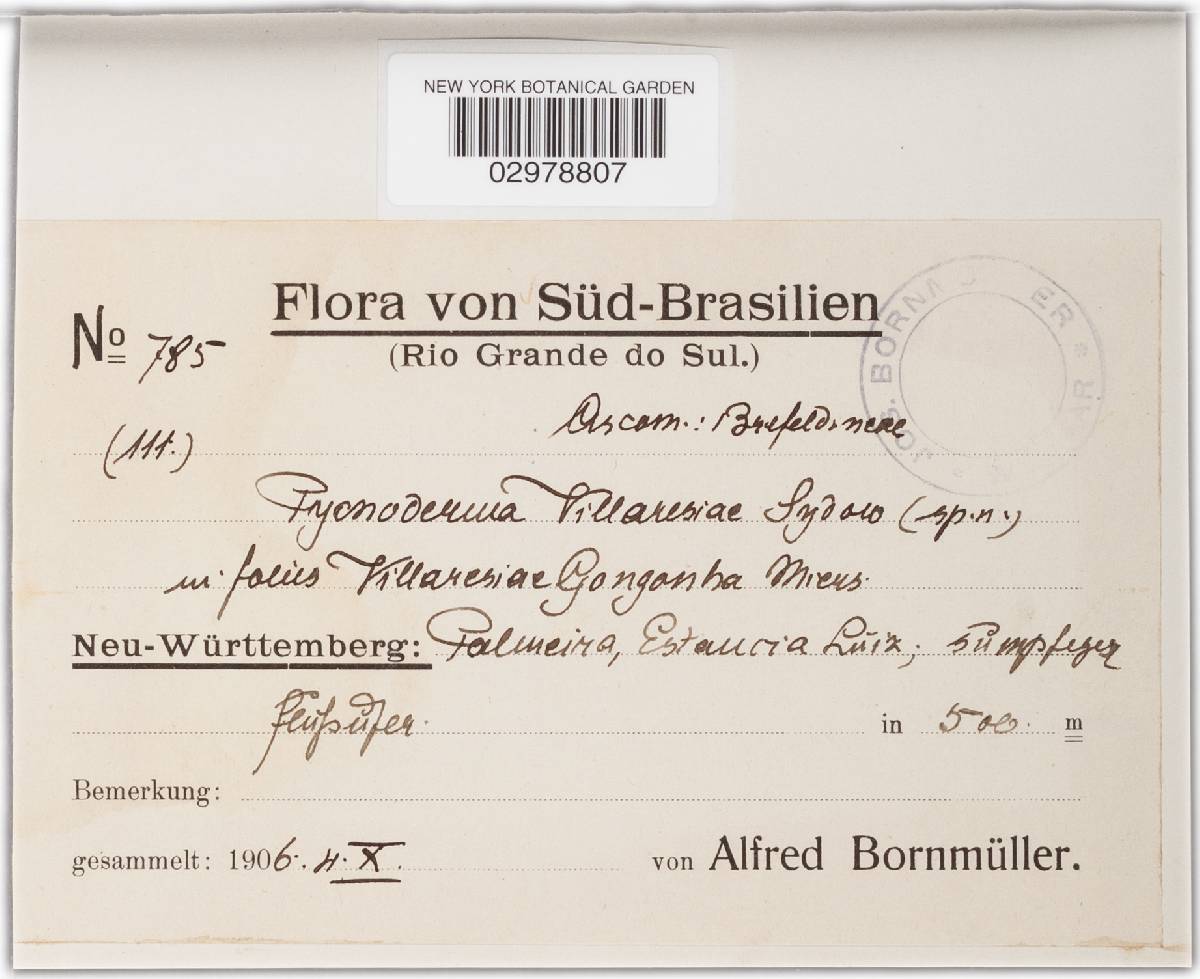 NEW YORK BOTANICAL GARDEN
02978807
Flora von Süd-Brasilien
(Rio Grande do Sul.)
No 785
JOS. BORNM
ER * AR
Ascom.: Brefeldineae
(111.)
Pycnoderma Villaresiae Sydow (sp.n.)
in foliis Villaresiae Gongonha Miers.
Neu-Württemberg: Palmeira, Estancia Luiz, sumpfiger
Flußufer. in 500 m
Bemerkung:
gesammelt: 1906. 4. X. von Alfred Bornmüller.